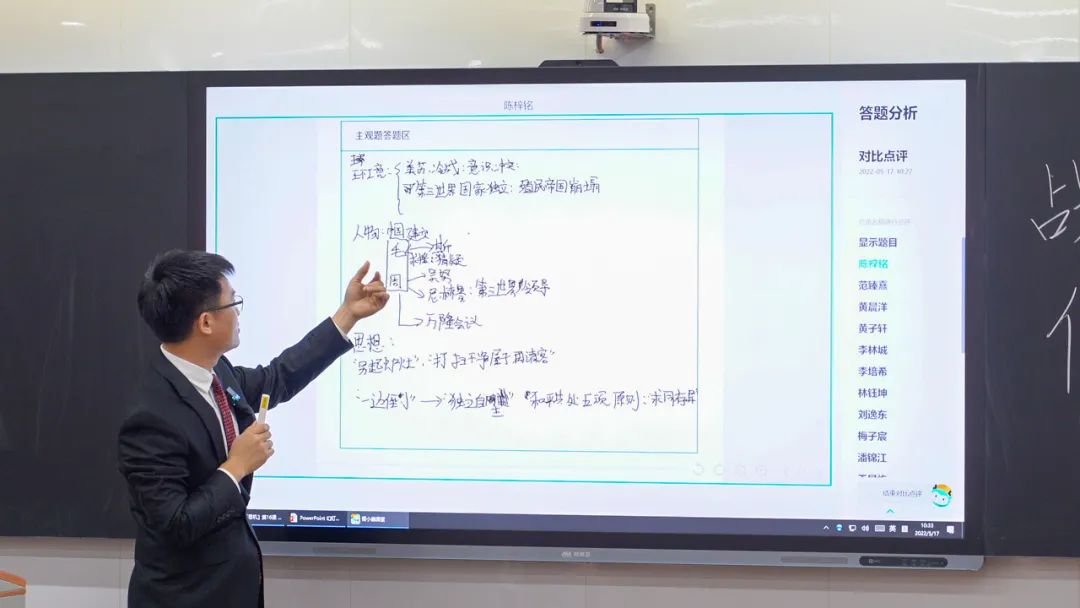 陈梓铭
主观题答题区
环境: 美苏冷战: 意识
第三世界国家独立: 殖民帝国崩塌
人物: 中国
毛
周
尼赫鲁: 第三世界
万隆会议
思想:
"另起炉灶", "打扫干净屋子再请客"
"一边倒" → "独立自主" "和平共处五项原则: 求同存异"
答题分析
对比点评
2022-05-17 10:27
显示题目
陈梓铭
范臻熹
黄晨洋
黄子轩
李林城
李培希
林钰坤
刘逸东
梅子宸
潘锦江
结束对比点评
PowerPoint 幻灯...
英
10:33
2022/5/17